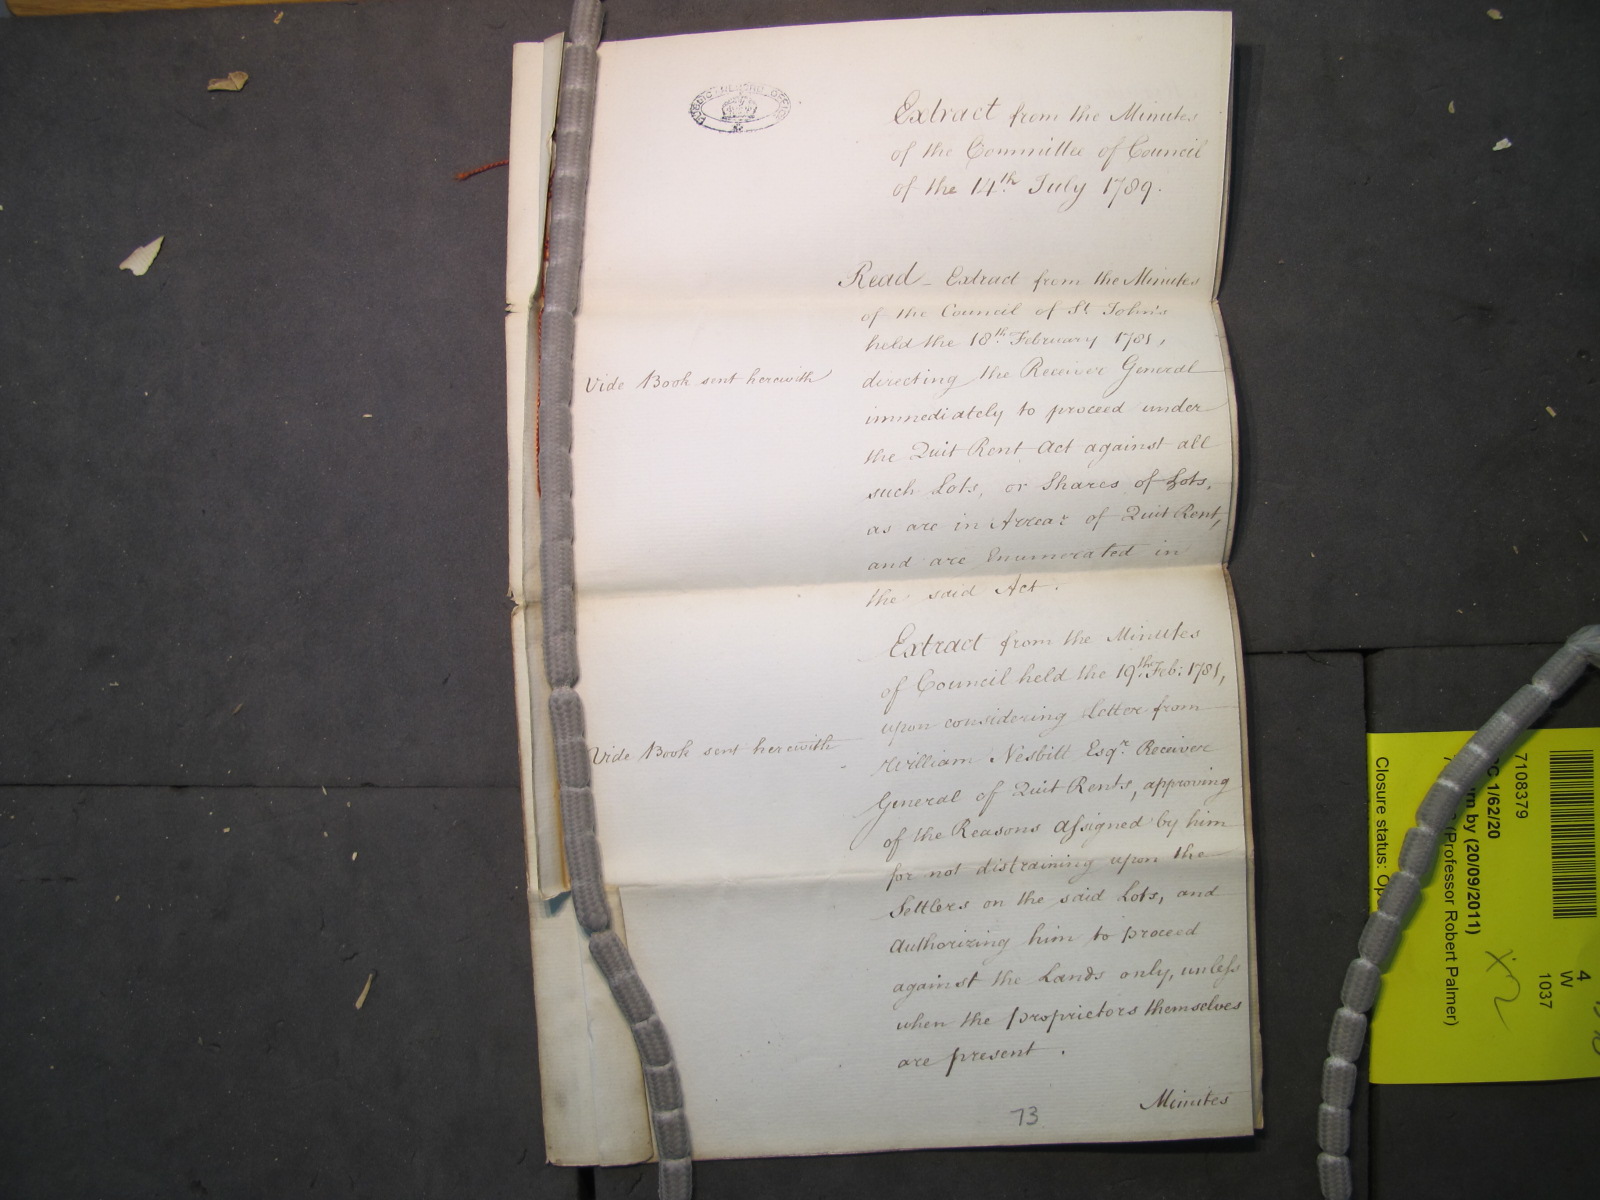 PUBLIC RECORD OFFICE
Extract from the Minutes
of the Committee of Council
of the 14th July 1789.
Read - Extract from the Minutes
of the Council of St. John's
held the 18th February 1781,
Vide Book sent herewith
directing the Receiver General
immediately to proceed under
the Quit Rent Act against all
such Lots, or Shares of Lots,
as are in Arrear of Quit Rent,
and are Enumerated in
the said Act.
Extract from the Minutes
of Council held the 19th Feb: 1781,
upon considering Letter from
Vide Book sent herewith
William Nesbitt Esqr. Receiver
General of Quit Rents, approving
of the Reasons assigned by him
for not distraining upon the
Settlers on the said Lots, and
authorizing him to proceed
against the Lands only, unless
when the proprietors themselves
are present.
Minutes
73
7108379
C 1/62/20
by (20/09/2011)
(Professor Robert Palmer)
Closure status: Op
4
W
1037